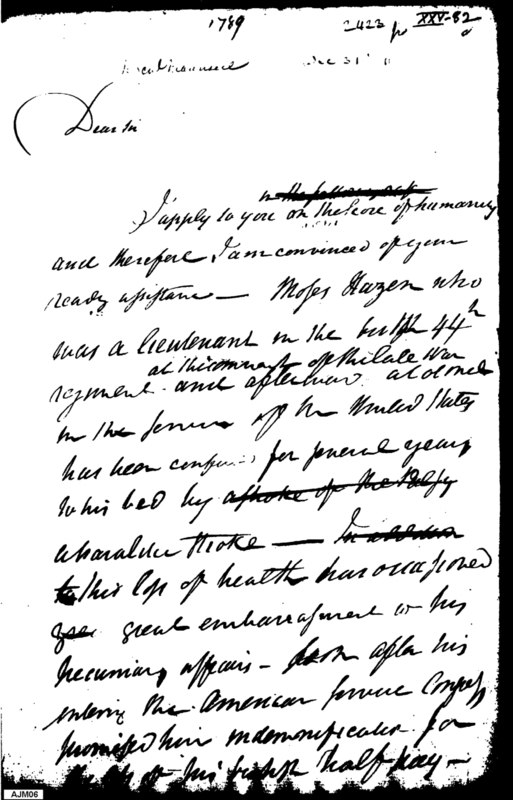 1789 2423 XXV-82
Dec 31
Dear Sir
in the following
I apply to you on the score of humanity
and therefore I am convinced of your
ready assistance — Moses Hazen who
was a lieutenant in the british 44th
at the commencement of the late War
regiment and afterwards a Colonel
in the service of the United States
has been confined for several years
to his bed by a stroke of the Palsy
a paralitic stroke — In addition
to this loss of health has occasioned
great embarrassment in his
pecuniary affairs — soon after his
entering the American service Congress
promised him indemnification for
his british half pay —
AJM06